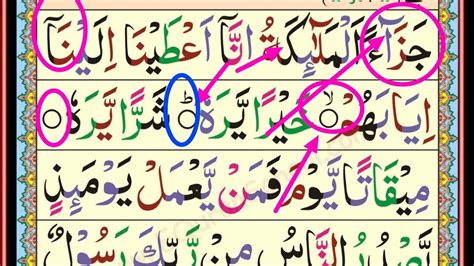 جَزَآءً اَلْمَلٰٓئِكَةُ اِنَّآ اَعْطَيْنَا اِلَيْنَآ
اِيَابَهُمْ ۙ○ خَيْرًا يَّرَهٗ ؕ○ شَرًّا يَّرَهٗ ○
مِيْقَاتًا يَّوْمَ فَمَنْ يَّعْمَلْ يَوْمَئِذٍ
يَّصْدُرُ النَّاسُ مِنْ رَّبِّكَ رَسُوْلٌ